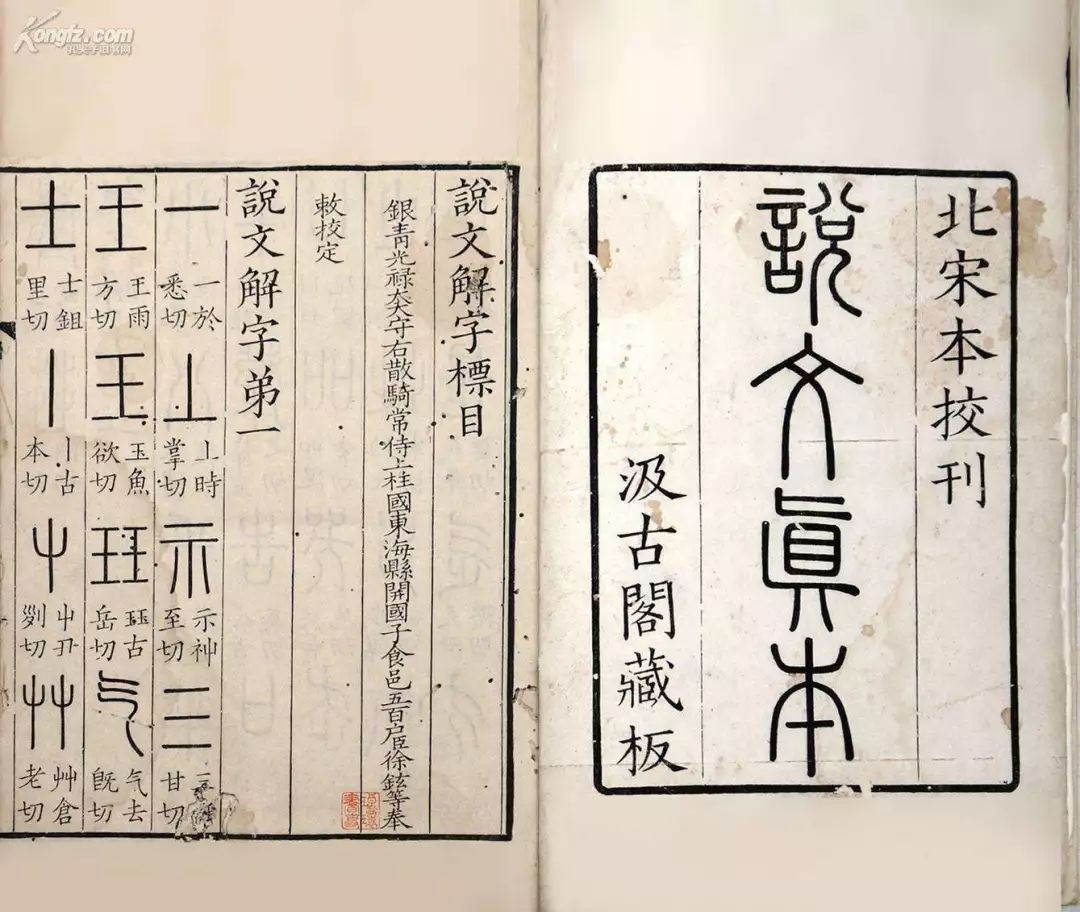 Kongfz.com
孔夫子旧书网
北宋本挍刊
說文眞本
汲古閣藏板
說文解字標目
銀青光禄大夫守右散騎常侍上柱國東海縣開國子食邑五百户臣徐鉉等奉
敕挍定
說文解字弟一
一 一於悉切 丄 丄時掌切 示 示神至切 三 三 甘切
王 王雨方切 玉 玉魚欲切 玨 玨古岳切 气 气去旣切
士 士鉏里切 丨 丨古本切 屮 屮丑列切 艸 艸倉老切